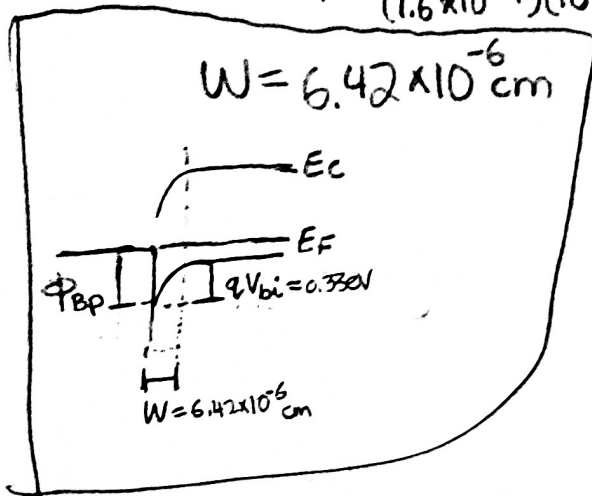 (1.6×10
W = 6.42×10⁻⁶cm
Ec
EF
ΦBp
qVbi=0.330V
W=6.42×10⁻⁶cm